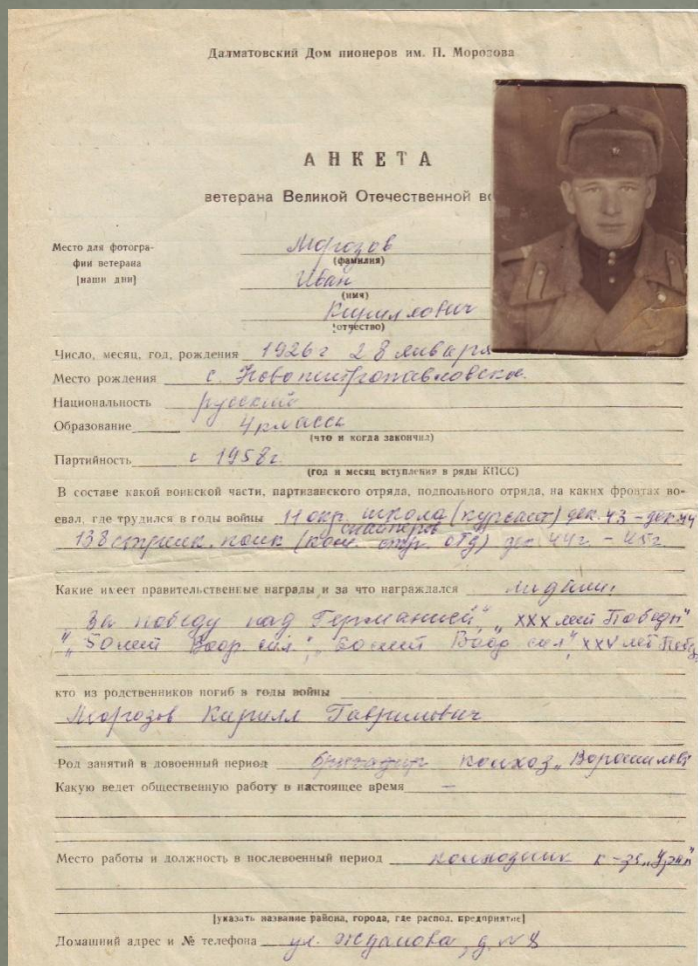 Далматовский Дом пионеров им. П. Морозова
АНКЕТА
ветерана Великой Отечественной во
Место для фотогра-
фии ветерана
[наши дни]
Морозов
(фамилия)
Иван
(имя)
Кириллович
(отчество)
Число, месяц, год, рождения 1926 г 28 января
Место рождения с. Новопетропавловское
Национальность русский
Образование 4 класса
(что и когда закончил)
Партийность с 1958 г.
(год и месяц вступления в ряды КПСС)
В составе какой воинской части, партизанского отряда, подпольного отряда, на каких фронтах во-
евал, где трудился в годы войны 11 окр. школа (курсант) дек. 43 – дек 44
снайперов
138 стрелк. полк (ком. стр. отд) дек 44 г. – 45 г.
Какие имеет правительственные награлы и за что награждался медали,
"За победу над Германией", "XXX лет Победы"
", 50 лет Воор сил", "60 лет Воор сил", XXV лет Побед
кто из родственников погиб в годы войны
Морозов Кирилл Гаврилович
Род занятий в довоенный период бригадир колхоз "Ворошилова
Какую ведет общественную работу в настоящее время –
Место работы и должность в послевоенный период к-за
[указать название района, города, где распол. предприятие]
Домашний адрес и № телефона ул. Жданова, д. № 8